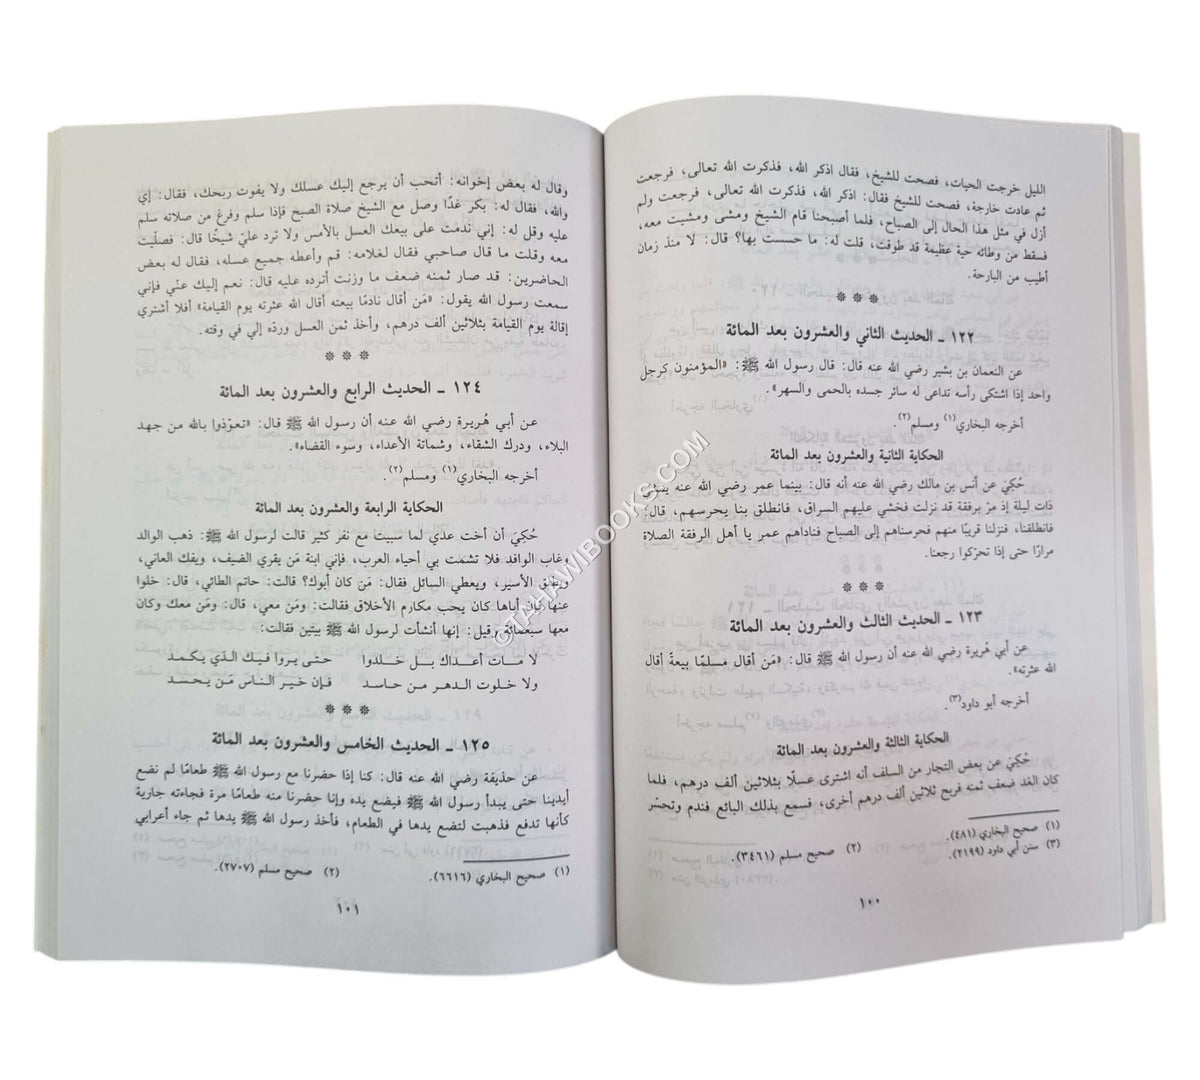 الليل خرجت الحيات، فصحت للشيخ، فقال اذكر الله، فذكرت الله تعالى، فرجعت
ثم عادت خارجة، فصحت للشيخ فقال: اذكر الله، فذكرت الله تعالى، فرجعت ولم
أزل في مثل هذا الحال إلى الصباح، فلما أصبحنا قام الشيخ ومشى ومشيت معه،
فسقط من وطائه حية عظيمة قد طوقت، قلت له: ما حسست بها؟ قال: لا منذ زمان
أطيب من البارحة.
***
١٢٢ ـ الحديث الثاني والعشرون بعد المائة
عن النعمان بن بشير رضي الله عنه قال: قال رسول الله ﷺ: «المؤمنون كرجل
واحد إذا اشتكى رأسه تداعى له سائر جسده بالحمى والسهر».
أخرجه البخاري(١) ومسلم(٢)
الحكاية الثانية والعشرون بعد المائة
حُكِيَ عن أنس بن مالك رضي الله عنه أنه قال: بينما عمر رضي الله عنه
ذات ليلة إذ مرّ برفقة قد نزلت فخشي عليهم السراق، فانطلق بنا يحرسهم، قال:
فانطلقنا، فنزلنا قريبًا منهم فحرسناهم إلى الصباح فناداهم عمر يا أهل الرفقة الصلاة
مرارًا حتى إذا تحرّكوا رجعنا.
***
١٢٣ ـ الحديث الثالث والعشرون بعد المائة
عن أبي هريرة رضي الله عنه أن رسول الله ﷺ قال: «مَن أقال مسلمًا بيعةً أقال
الله عثرته».
أخرجه أبو داود(٣).
الحكاية الثالثة والعشرون بعد المائة
حُكِيَ عن بعض التجار من السلف أنه اشترى عسلًا بثلاثين ألف درهم، فلما
كان الغد ضعف ثمنه فربح ثلاثين ألف درهم أخرى، فسمع بذلك البائع فندم وتحسّر
(١) صحيح البخاري (٤٨١).
(٢) صحيح مسلم (٣٤٦١).
(٣) سنن أبي داود (٢١٩٩).
١٠٠
وقال له بعض إخوانه: أتحب أن يرجع إليك عسلك ولا يفوت ربحك، فقال: إي
والله، فقال له: بكر غدًا وصل مع الشيخ صلاة الصبح فإذا سلم وفرغ من صلاته سلم
عليه وقل له: إني ندمت على بيعك العسل بالأمس ولا ترد عليّ شيئًا قال: فصلّيت
معه وقلت ما قال صاحبي فقال لغلامه: قم وأعطه جميع عسله، فقال له بعض
الحاضرين: قد صار ثمنه ضعف ما وزنت أترده عليه قال: نعم إليك عنّي فإني
سمعت رسول الله يقول: «مَن أقال نادمًا بيعته أقال الله عثرته يوم القيامة» أفلا أشتري
إقالة يوم القيامة بثلاثين ألف درهم، وأخذ ثمن العسل وردّه إلي في وقته.
***
١٢٤ ـ الحديث الرابع والعشرون بعد المائة
عن أبي هُريرة رضي الله عنه أن رسول الله ﷺ قال: «تعوّذوا بالله من جهد
البلاء، ودرك الشقاء، وشماتة الأعداء، وسوء القضاء».
أخرجه البخاري(١) ومسلم(٢).
الحكاية الرابعة والعشرون بعد المائة
حُكِيَ أن أخت عدي لما سبيت مع نفر كثير قالت لرسول الله ﷺ: ذهب الوالد
وغاب الوافد فلا تشمت بي أحياء العرب، فإني ابنة مَن يقري الضيف، ويفك العاني،
الأسير، ويعطي السائل فقال: مَن كان أبوك؟ قالت: حاتم الطائي، قال: خلوا
عنها فإن أباها كان يحب مكارم الأخلاق فقالت: ومَن معي، قال: ومَن معك وكان
معها سبعمائة، وقيل: إنها أنشأت لرسول الله ﷺ بيتين فقالت:
لا مات أعداك بل خلدوا حتى يروا فيك الذي يكمد
ولا خلوت الدهر من حاسد فإن خير الناس مَن يحسد
***
١٢٥ ـ الحديث الخامس والعشرون بعد المائة
عن حذيفة رضي الله عنه قال: كنا إذا حضرنا مع رسول الله ﷺ طعامًا لم نضع
أيدينا حتى يبدأ رسول الله ﷺ فيضع يده وإنا حضرنا منه طعامًا مرة فجاءته جارية
كأنها تدفع فذهبت لتضع يدها في الطعام، فأخذ رسول الله ﷺ يدها ثم جاء أعرابي
(١) صحيح البخاري (٦٦١٦). (٢) صحيح مسلم (٢٧٠٧).
١٠١
©TAHAWIBOOKS.COM